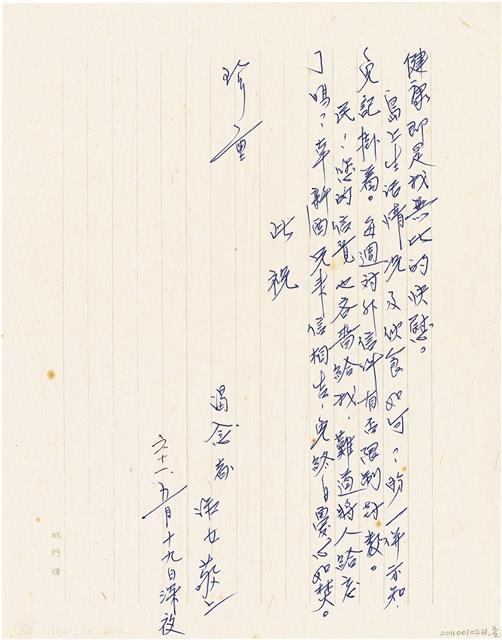 健康即是我無比的快慰。
島上生活情況及飲食如何?盼一併示知,
免記掛着。每週对外信件有否限制封數。
民!您的信竟也吝嗇給我,難道將人給忘
了嗎?幸新西兄來信相告,免終日憂心如焚。
此祝
珍重
渴念者
敬上
六十一、五月十九日深夜